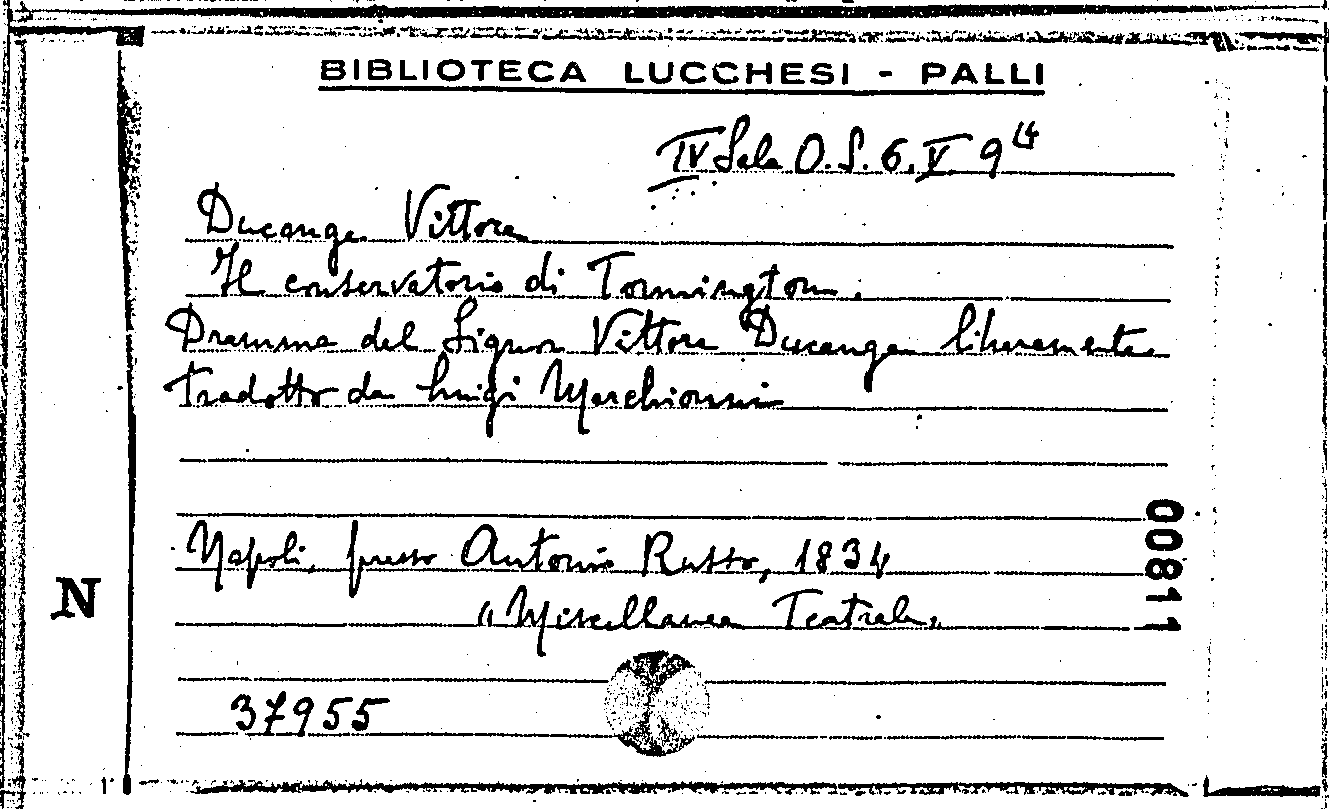 BIBLIOTECA LUCCHESI - PALLI
IV Sala O. S. 6. V 9 14
Ducange Vittore
Il conservatorio di Tormington.
Dramma del Signor Vittore Ducange liberamente
tradotto da Luigi Marchionni
Napoli, presso Antonio Russo, 1834
"Miscellanea Teatrale"
37955
N
00811